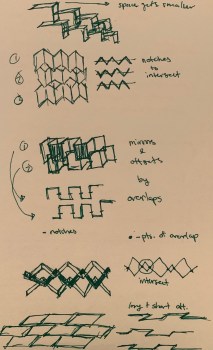 space gets smaller
①
②
③
notches
to
intersect
①
②
mirrors &
offsets
by
overlaps
- notches
- pts. of overlap
intersect
long + short alt.